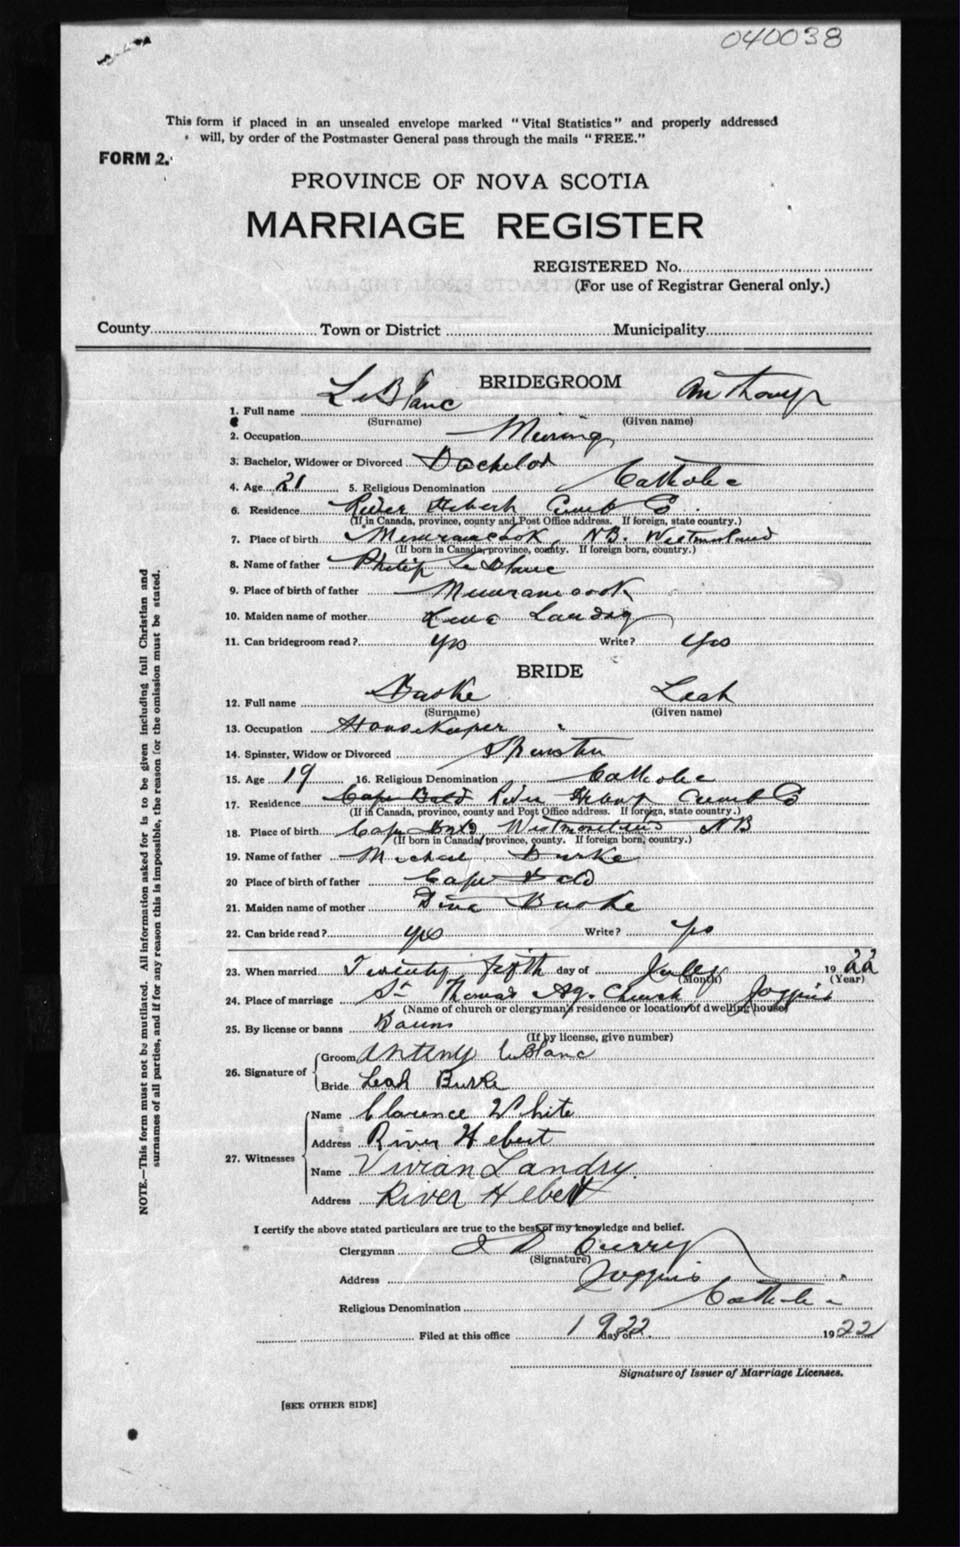 040038
This form if placed in an unsealed envelope marked "Vital Statistics" and properly addressed
will, by order of the Postmaster General pass through the mails "FREE."
FORM 2.
PROVINCE OF NOVA SCOTIA
MARRIAGE REGISTER
REGISTERED No.
(For use of Registrar General only.)
County Town or District Municipality
BRIDEGROOM
1. Full name LeBlanc Anthony
(Surname) (Given name)
2. Occupation Mining
3. Bachelor, Widower or Divorced Bachelor
4. Age 21 5. Religious Denomination Catholic
6. Residence River Hebert Cumb Co
(If in Canada, province, county and Post Office address. If foreign, state country.)
7. Place of birth Memramcook, NB. Westmorland
(If born in Canada, province, county. If foreign born, country.)
8. Name of father Philip LeBlanc
9. Place of birth of father Memramcook
10. Maiden name of mother Landry
11. Can bridegroom read? Yes Write? Yes
BRIDE
12. Full name Burke Leah
(Surname) (Given name)
13. Occupation House Keeper
14. Spinster, Widow or Divorced Spinster
15. Age 19 16. Religious Denomination Catholic
17. Residence River Hebert Cumb Co
(If in Canada, province, county and Post Office address. If foreign, state country.)
18. Place of birth Cape Westmorland NB
(If born in Canada, province, county. If foreign born, country.)
19. Name of father Michael Burke
20 Place of birth of father Cape
21. Maiden name of mother Burke
22. Can bride read? yes Write? Yes
23. When married Twenty fifth day of July 1922
(Month) (Year)
24. Place of marriage St Thomas Aq. Church Joggins
(Name of church or clergyman's residence or location of dwelling house)
25. By license or banns Banns
(If by license, give number)
26. Signature of Groom Anthony LeBlanc
Bride Leah Burke
27. Witnesses Name Clarence White
Address River Hebert
Name Vivian Landry.
Address River Hebert
I certify the above stated particulars are true to the best of my knowledge and belief.
Clergyman J D Currry
(Signature)
Address Joggins
Religious Denomination Catholic
Filed at this office 1922 day of 1922
Signature of Issuer of Marriage Licenses.
[SEE OTHER SIDE]
NOTE.—This form must not be mutilated. All information asked for is to be given including full Christian and
surnames of all parties, and if for any reason this is impossible, the reason for the omission must be stated.